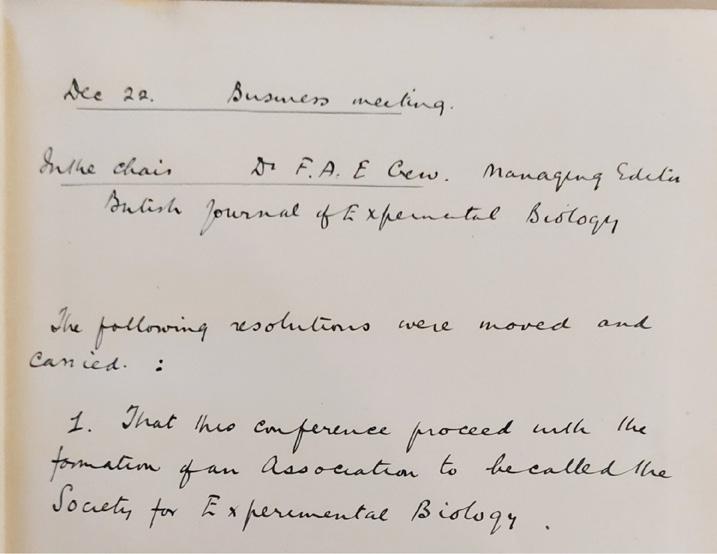 Dec 22. Business meeting.
In the chair Dr F. A. E Crew. Managing Editor
British Journal of Experimental Biology
The following resolutions were moved and
carried. :
1. That this conference proceed with the
formation of an Association to be called the
Society for Experimental Biology.